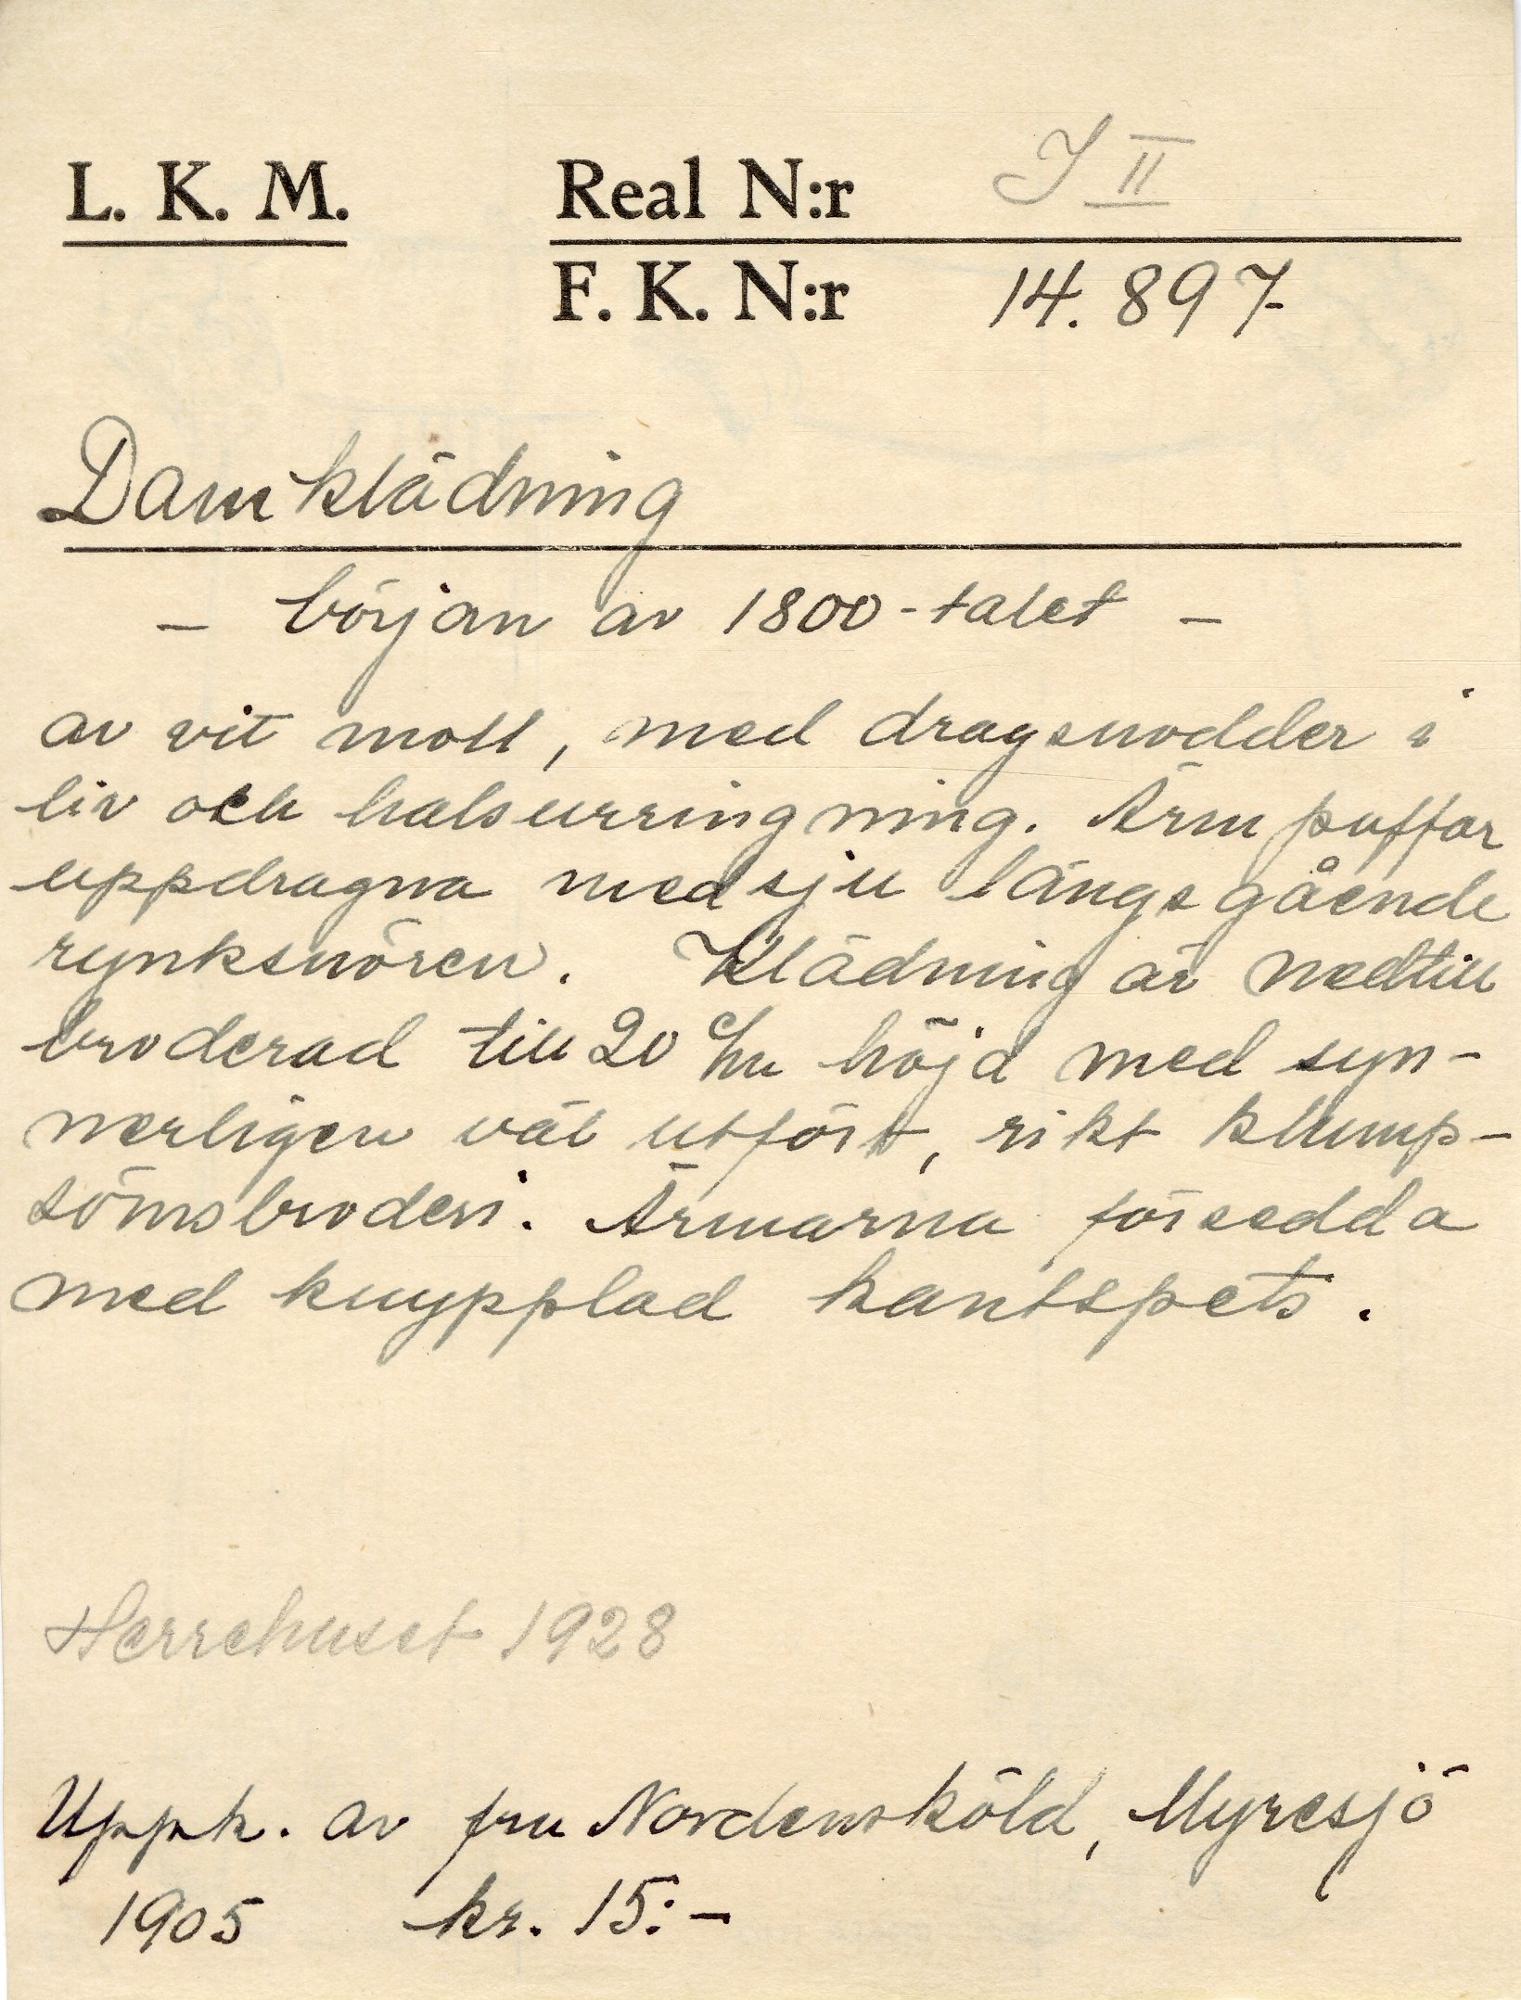 L. K. M. Real N:r J II
F. K. N:r 14.897
Damklädning
– början av 1800-talet –
av vit moll, med dragsnodder i
liv och halsurringning. Ärmpuffar
uppdragna med sju längsgående
rynksnören. Klädning är nedtill
broderad till 20 c/m höjd med syn-
nerligen väl utfört, rikt klump-
sömsbroderi. Ärmarna försedda
med knypplad kantspets.
Herrehuset 1928
Uppk. av fru Nordensköld, Myresjö
1905 kr. 15:-